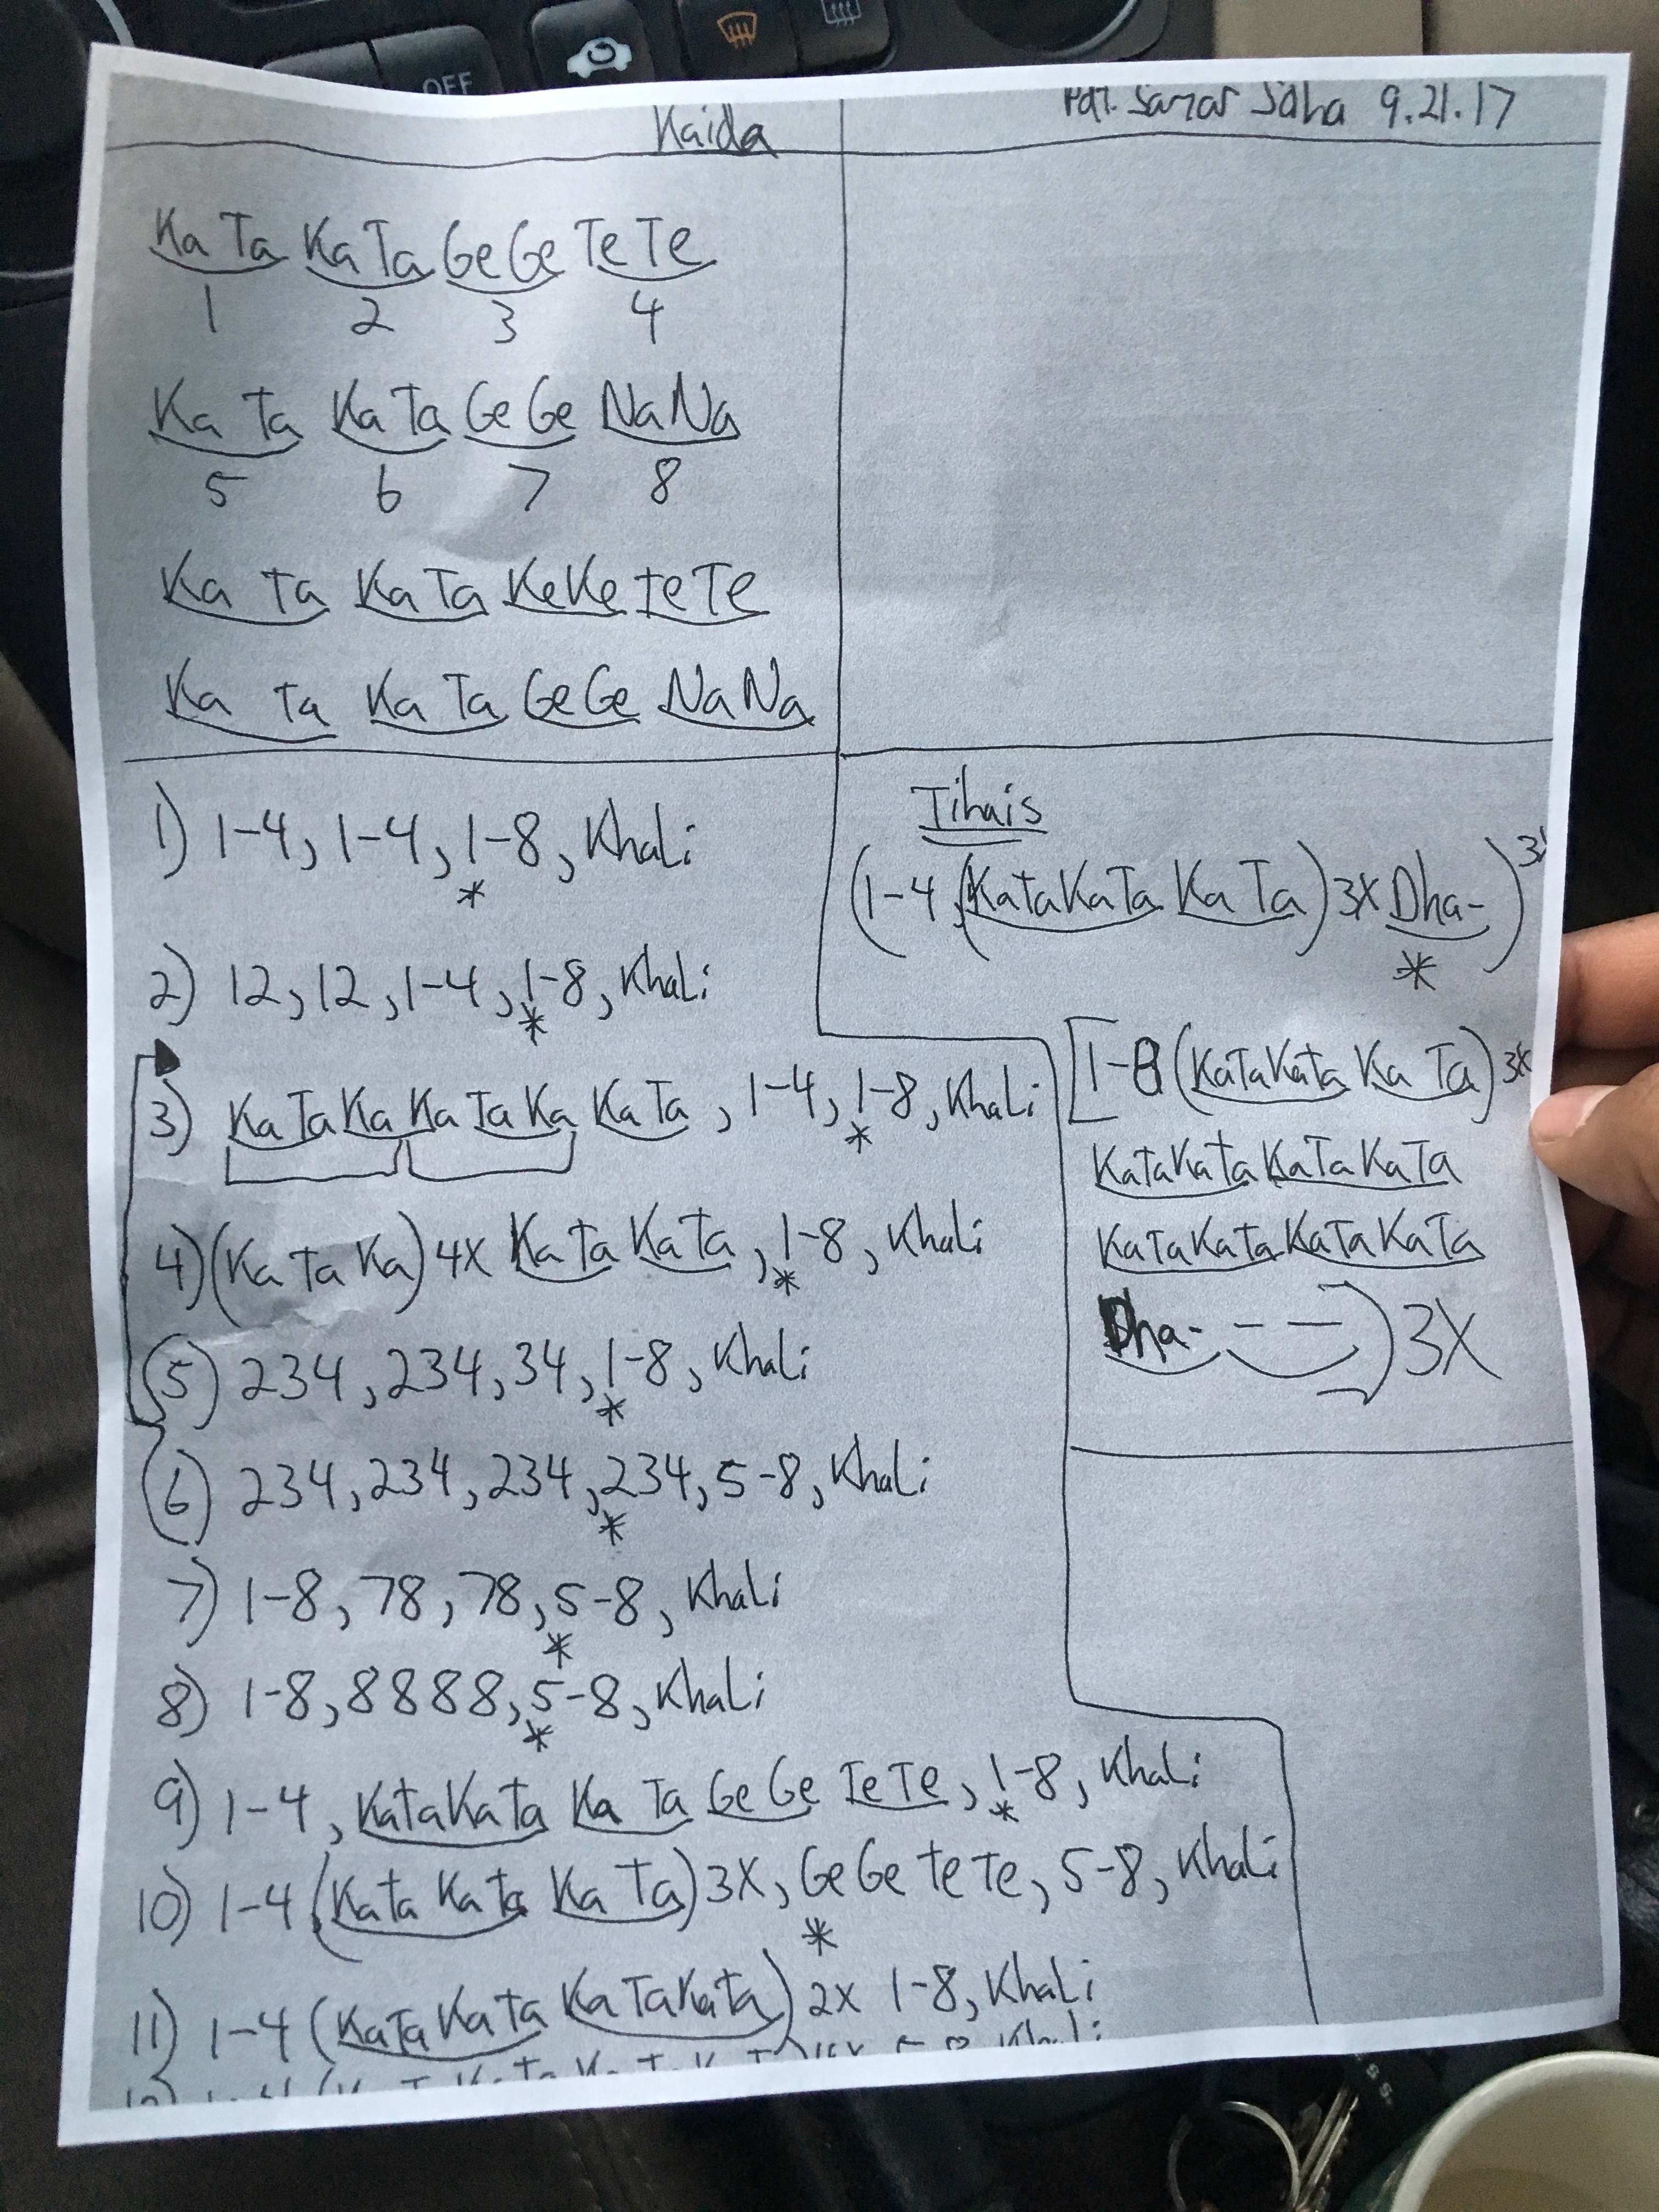 OFF
Kaida
Pdt. Samar Saha 9.21.17
Ka Ta Ka Ta Ge Ge Te Te
1 2 3 4
Ka Ta Ka Ta Ge Ge Na Na
5 6 7 8
Ka Ta Ka Ta Ke Ke te Te
Ka Ta Ka Ta Ge Ge Na Na
1) 1-4, 1-4, 1-8, Khali
*
2) 12, 12, 1-4, 1-8, Khali
*
3) Ka Ta Ka Ka Ta Ka Ka Ta, 1-4, 1-8, Khali
*
4) (Ka Ta Ka) 4X Ka Ta Ka Ta, 1-8, Khali
*
5) 234, 234, 34, 1-8, Khali
*
6) 234, 234, 234, 234, 5-8, Khali
*
7) 1-8, 78, 78, 5-8, Khali
*
8) 1-8, 8888, 5-8, Khali
*
9) 1-4, KaTaKaTa Ka Ta Ge Ge Te Te, 1-8, Khali
*
10) 1-4 (Kata Kata Ka Ta) 3X, Ge Ge te Te, 5-8, Khali
*
11) 1-4 (KaTa Ka Ta Ka Ta Kata) 2X 1-8, Khali
Tihais
(1-4 (KaTaKaTa Ka Ta) 3X Dha-) 3X
*
[1-8 (KaTaKata Ka Ta) 3X
KaTaKata KaTaKaTa
KaTaKaTa KaTaKaTa
Dha- - -] ) 3X